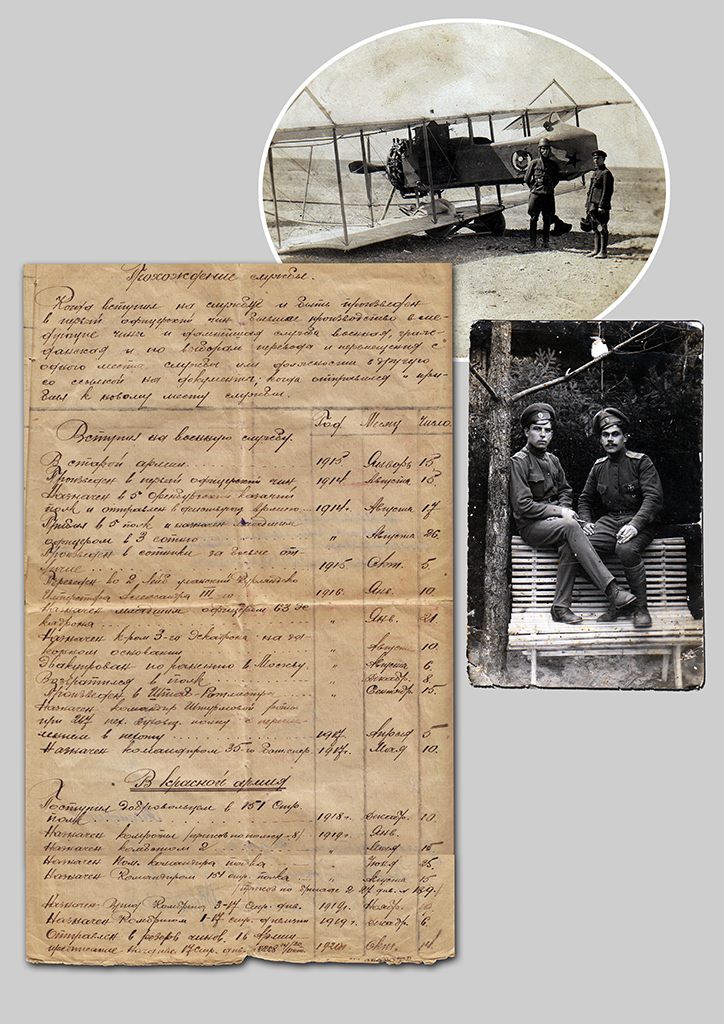 Похождение службы.
Когда вступил на службу и быть произведен
в первый офицерский чин дальше производство в сле-
дующие чины и дальнейшая служба военная, граж-
данская и по выборам перевода и перемещения с
одного места службы или должности в другую
со ссылкой на документы; когда отправился и при-
был к новому месту службы.
Год Месяц Число.
Вступил на военную службу.
В старой армии 1913 Январь 15
Произведен в первый офицерский чин 1914 Августа 15.
Назначен в 5 Оренбургский казачий
полк и отправлен в 1914. Августа 17.
Прибыл в 5 полк и назначен младшим
офицером в 3 сотню " Августа 26.
Произведен в сотники за боевые от-
личие 1915 Окт. 5.
Переведен во 2 Лейб уланский Курляндск.
Императора Александра III го 1916. Янв. 10.
Назначен младшим офицером 63 эс
кадрона " Янв. 21
Назначен к-ром 3-го эскадрона на за-
конном основании " Август 10.
Эвакуирован по ранению в Москву " Августа 6.
Возвратился в полк " декабр. 8.
Произведен в Штаб-Ротмистра " Сентябр. 15.
Назначен командир Штурмовой
при 217 пех. полку с переи-
лением в пехоту 1917. Апрель 5
Назначен командиром 35-го 1917г. Мая 10.
В красной армии
Поступил добровольцем в 151 Стр.
полк 1918г. декабр. 10.
Назначен комроты (приказ по полку 8) 1919г. Янв.
Назначен комбатом 2 " 15
Назначен Пом. командира полка " Июня 25.
Назначен Командиром 151 стр. полка " Августа 15
(приказ по бригаде 2 27 див. 189.)
Назначен Комбриг 3-17 Стр. див. 1919г. Ноябр.
Назначен Комбригом 1-17 стр. дивизии 1919г. декабр. 6.
Отправлен в резерв чинов. 16 Армии
17 Стр. див. 1920г. Окт. 14